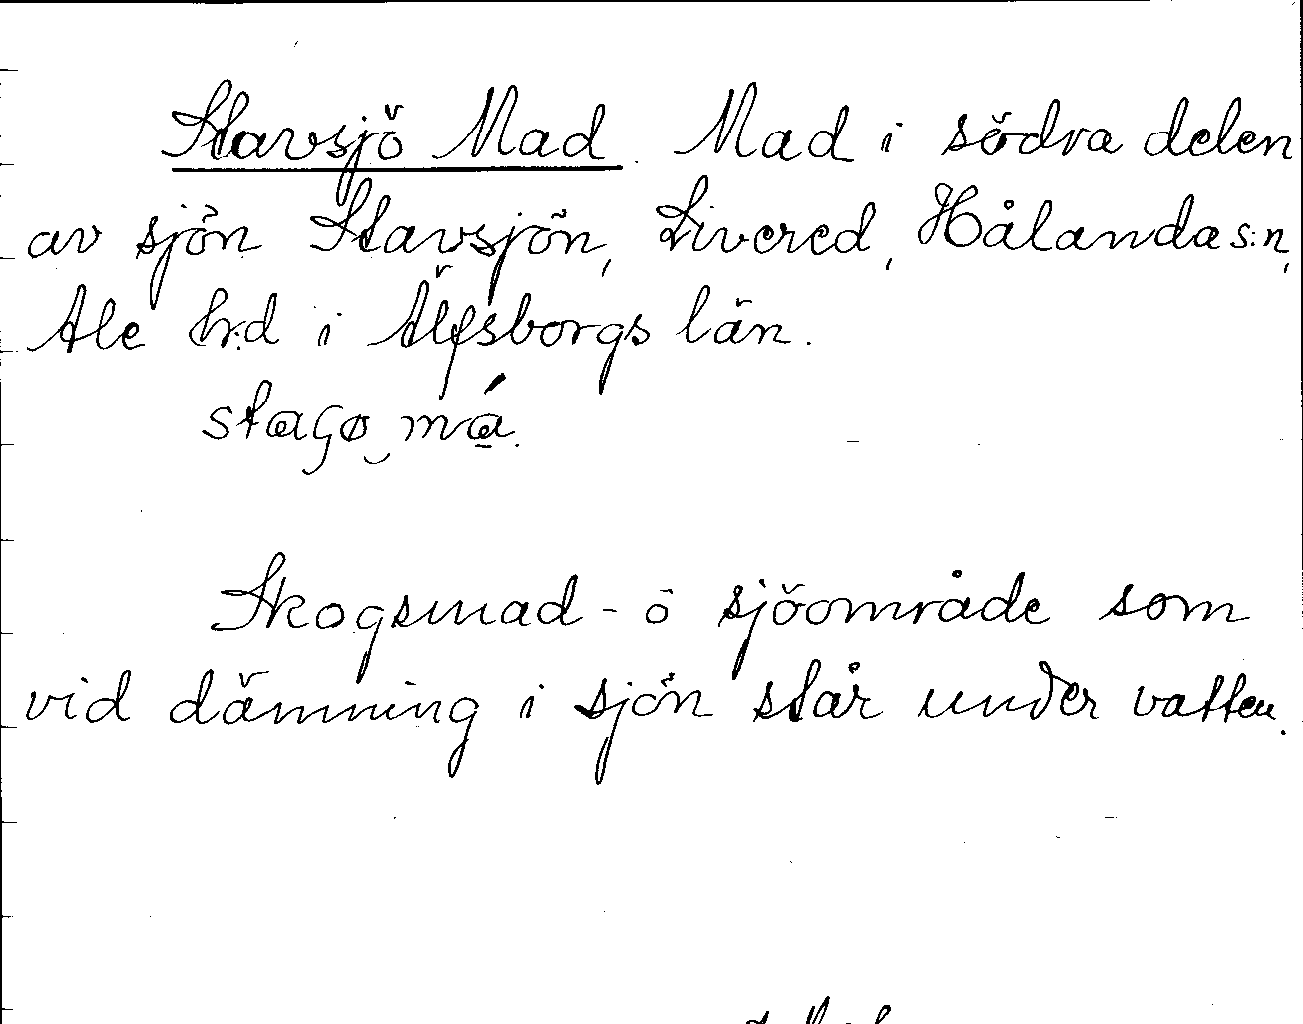 Stavsjö Mad. Mad i södra delen
av sjön Stavsjön, Livered, Hålanda s:n,
Ale h:d i Älfsborgs län.
Skogsmad- o sjöområde som
vid dämning i sjön står under vatten.